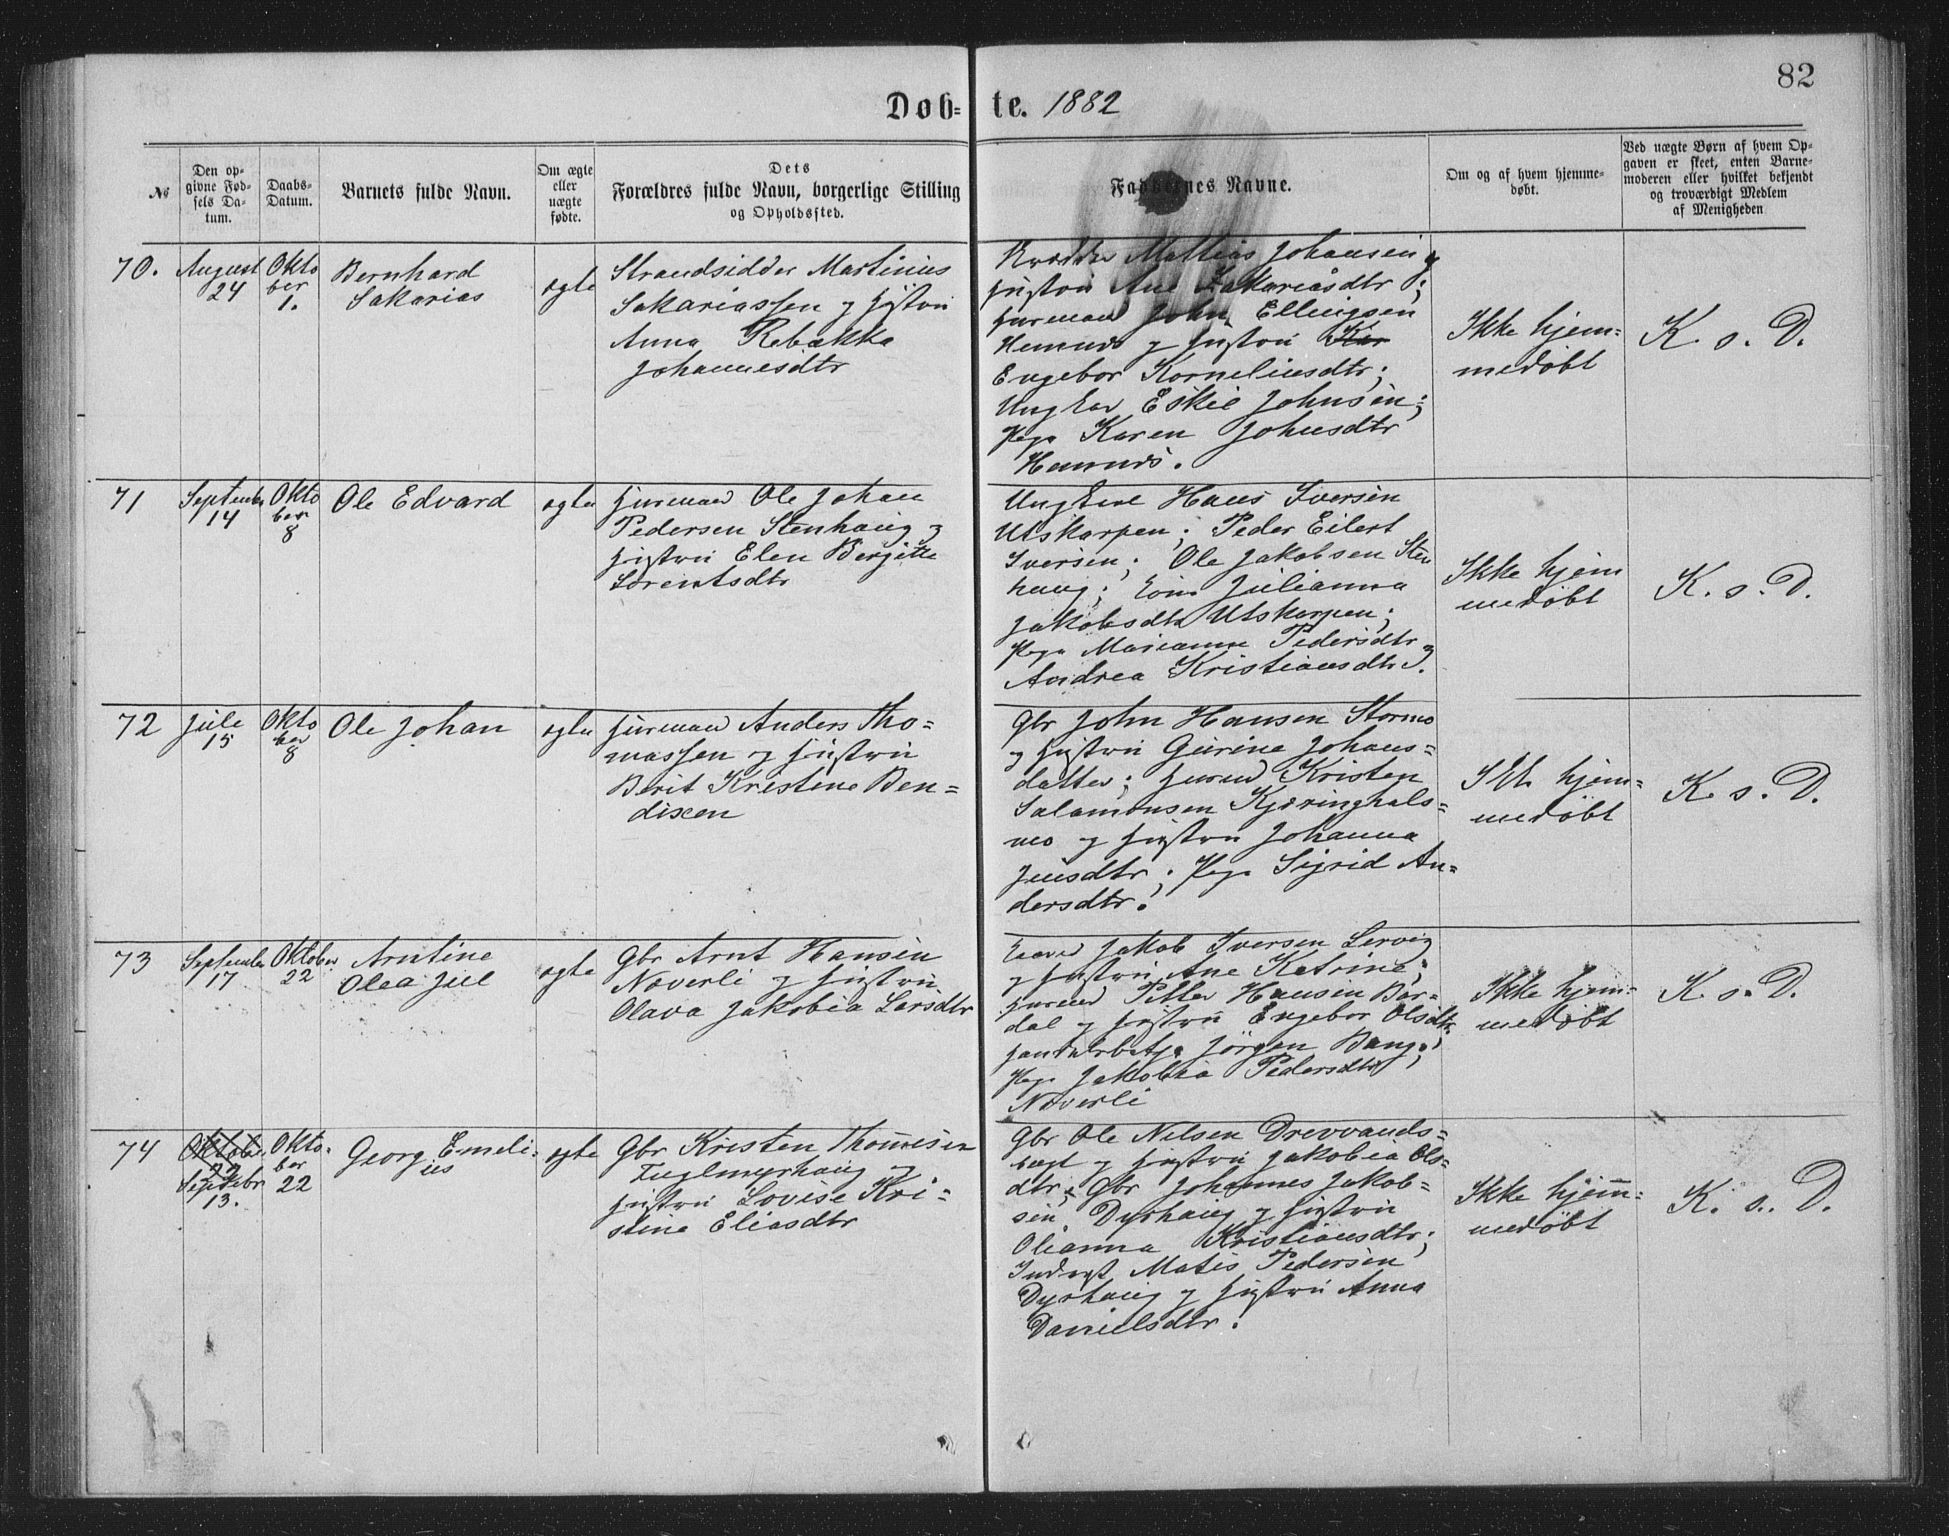 82
Døb= te. 1882
No
Den op-
givne Fød-
sels Da-
tum.
Daabs-
Datum.
Barnets fulde Navn.
Om ægte
eller
uægte
fødte.
Dets
Forældres fulde Navn, borgerlige Stilling
og Opholdssted.
Faddernes Navne.
Om og af hvem hjemme-
døbt.
Ved uægte Børn af hvem Op-
gaven er skeet, enten Barne-
moderen eller hvilket bekjendt
og troværdigt Medlem
af Menigheden
70.
August
24
Okto
ber
1.
Bernhard
Sakarias
ægte
Strandsidder Martinius
Sakariassen og Hustru
Anna Rebækka
Johannesdtr
Mattias Johansen og
Hustru Ane Sakariasdtr;
Husmand John Ellingsen
Hemnes og Hustru
Engebor Korneliusdtr;
Ungkar Eskil Johnsen;
Pige Karen Johnsdtr
Hemnes.
Ikke hjem=
medøbt
K. s. D.
71
September
14
Okto
ber
8
Ole Edvard
ægte
Husmand Ole Johan
Pedersen Stenhaug og
Hustru Elen Bergitte
Lorentsdtr
Ungkarl Hans Iversen
Utskarpen; Peder Eilert
Iversen; Ole Jakobsen Sten
haug; Kone Julianna
Jakobsdtr Utskarpen;
Pige Marianne Pedersdtr og
Andrea Kristiansdtr.
Ikke hjem
medøbt
K. s. D.
72
Juli
15
Okto
ber
8
Ole Johan
ægte
Husmand Anders Tho=
massen og Hustru
Berit Kristine Ben=
dixen
Gbr John Hansen Stormo
og Hustru Gurine Johans=
datter; Husmd Kristen
Salamonsen Kjæringhals=
mo og Hustru Johanna
Jensdtr; Pige Sigrid An=
dersdtr.
Ikke hjem=
medøbt
K. s. D.
73
September
17
Oktober
22
Arntine
Olea Jul
ægte
Gbr Arnt Hansen
Noverli og Hustru
Olava Jakobia Larsdtr
Jakob Iversen Lervig
og Hustru Ane Katrine;
Husmd Petter Hansen Bar=
dal og Hustru Engebor Olsdtr
Jørgen Bang;
Pige Jakobia Pedersdtr,
Noverli
Ikke hjem=
medøbt
K. s. D.
74
Oktober
22
Septebr
13.
Okto-
ber
22
Georg Emeli=
us
ægte
Gbr Kristen Thomesen
Fuglmyrhaug og
Hustru Lovise Kri=
stina Eliasdtr
Gbr Ole Nilsen Drevvands=
bygt og Hustru Jakobia Ols=
dtr; Gbr Johannes Jakob=
sen Dyrhaug og Hustru
Olianna Kristiansdtr;
Inderst Matis Pedersen
Dyrhaug og Hustru Anna
Danielsdtr.
Ikke hjem=
medøbt
K. s. D.